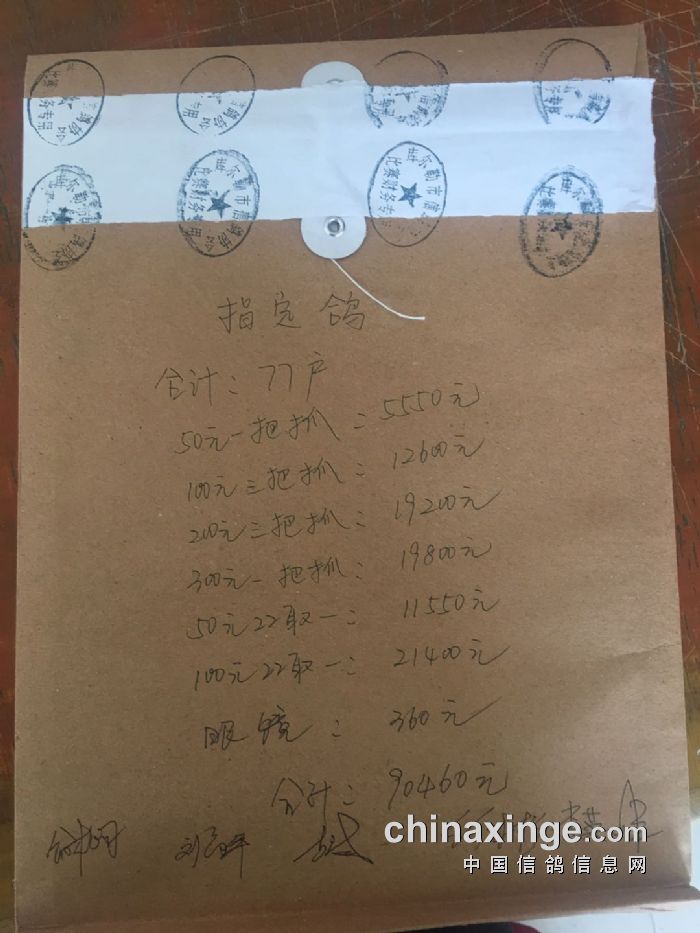 尔勒市信鸽协会
比赛财务专用
指定鸽
合计：77户
50元一把抓：5550元
100元三把抓：12600元
200元三把抓：19200元
300元一把抓：19800元
50元22取一：11550元
100元22取一：21400元
眼镜：360元
合计：90460元
chinaxinge.com
中国信鸽信息网